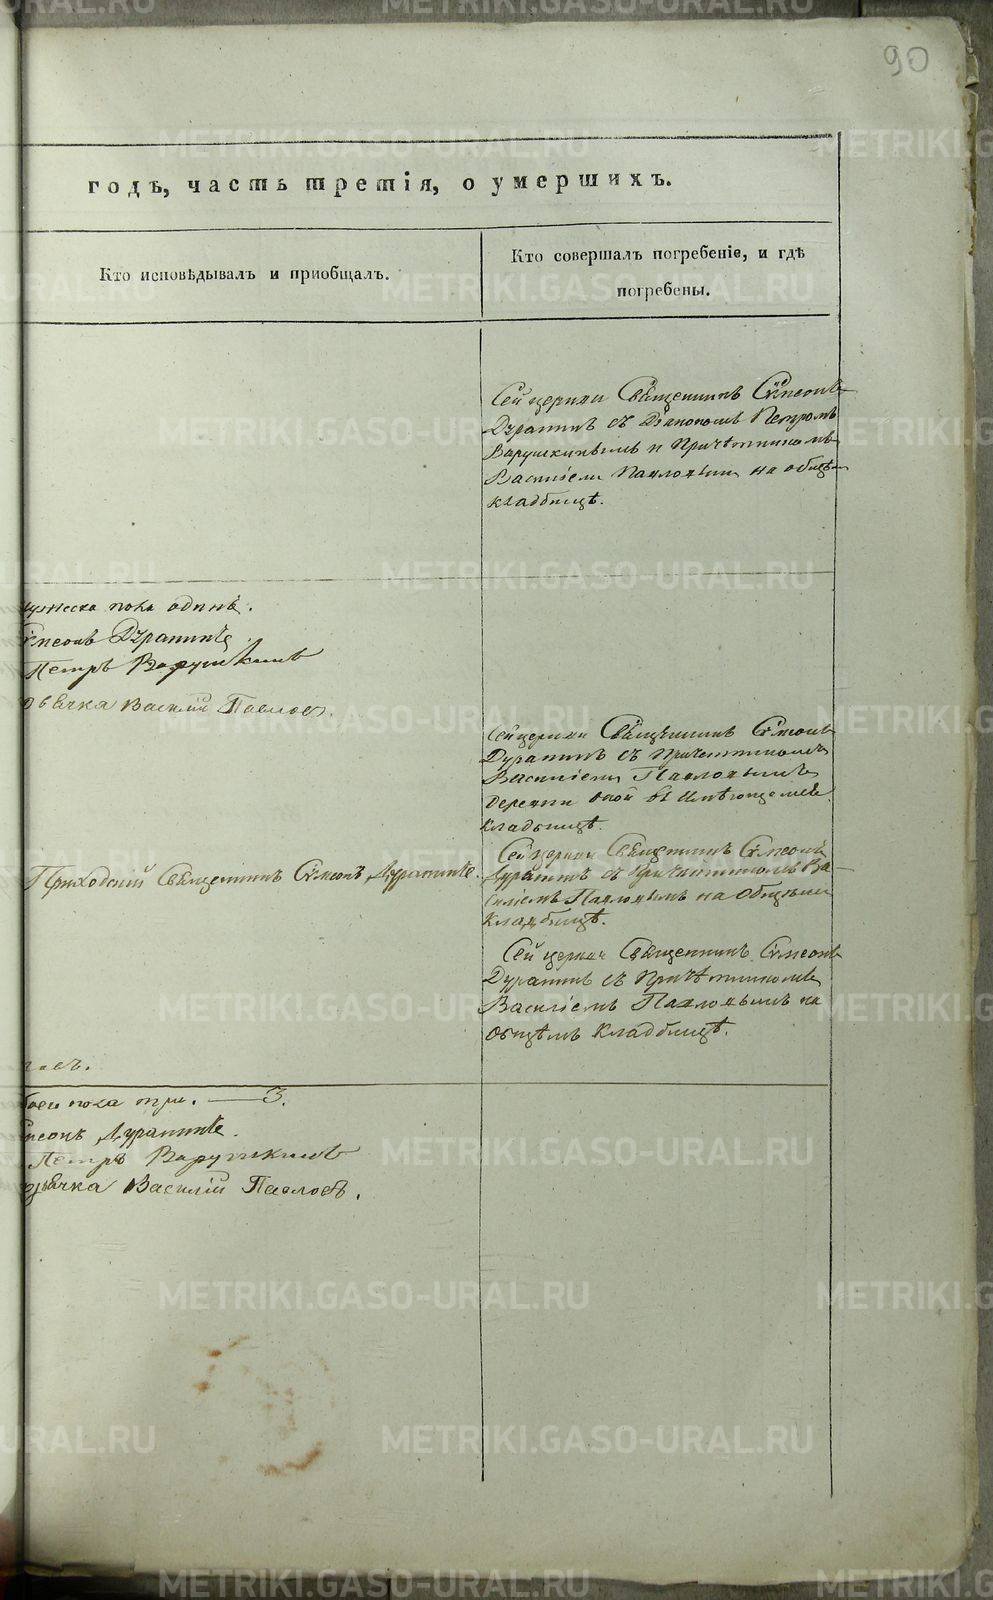 90
годѣ, часть третія, о умершихъ.
Кто исповѣдывалъ и приобщалъ.
Кто совершалъ погребеніе, и гдѣ
погребены.
Сей церкви Священникъ Сѵмеонъ
Дурапинъ съ Діакономъ Петромъ
Варушкинымъ и Причетникомъ
Василіемъ Павловымъ на общемъ
кладбищѣ.
пола одинъ.
Сѵмеонъ Дурапинъ
Петръ Варушкинъ
Василій Павловъ.
Сей церкви Священникъ Сѵмеонъ
Дурапинъ съ Причетникомъ
Василіемъ Павловымъ
деревни оной въ имѣющемся
кладбищѣ.
Приходскій Священникъ Сѵмеонъ Дурапинъ.
Сей церкви Священникъ Сѵмеонъ
Дурапинъ съ Причетникомъ Ва-
силіемъ Павловымъ на Общемъ
Кладбищѣ.
Сей церкви Священникъ Сѵмеонъ
Дурапинъ съ Причѣтникомъ
Василіемъ Павловымъ на
Общемъ Кладбищѣ.
пола три. — 3.
Дурапинъ.
Петръ Варушкинъ
Василій Павловъ.
METRIKI.GASO-URAL.RU